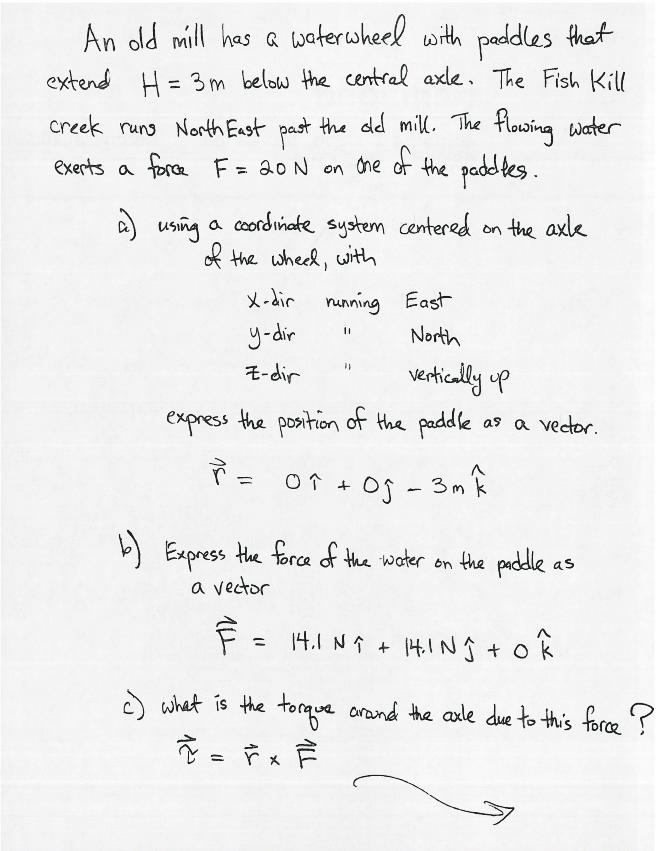 An old mill has a waterwheel with paddles that
extend H = 3m below the central axle. The Fish Kill
creek runs NorthEast past the old mill. The flowing water
exerts a force F = 20 N on one of the paddles.
a) using a coordinate system centered on the axle
of the wheel, with
x-dir running East
y-dir " North
z-dir " vertically up
express the position of the paddle as a vector.
r⃗ = 0 î + 0 ĵ - 3 m k̂
b) Express the force of the water on the paddle as
a vector
F⃗ = 14.1 N î + 14.1 N ĵ + 0 k̂
c) what is the torque around the axle due to this force?
τ⃗ = r⃗ × F⃗